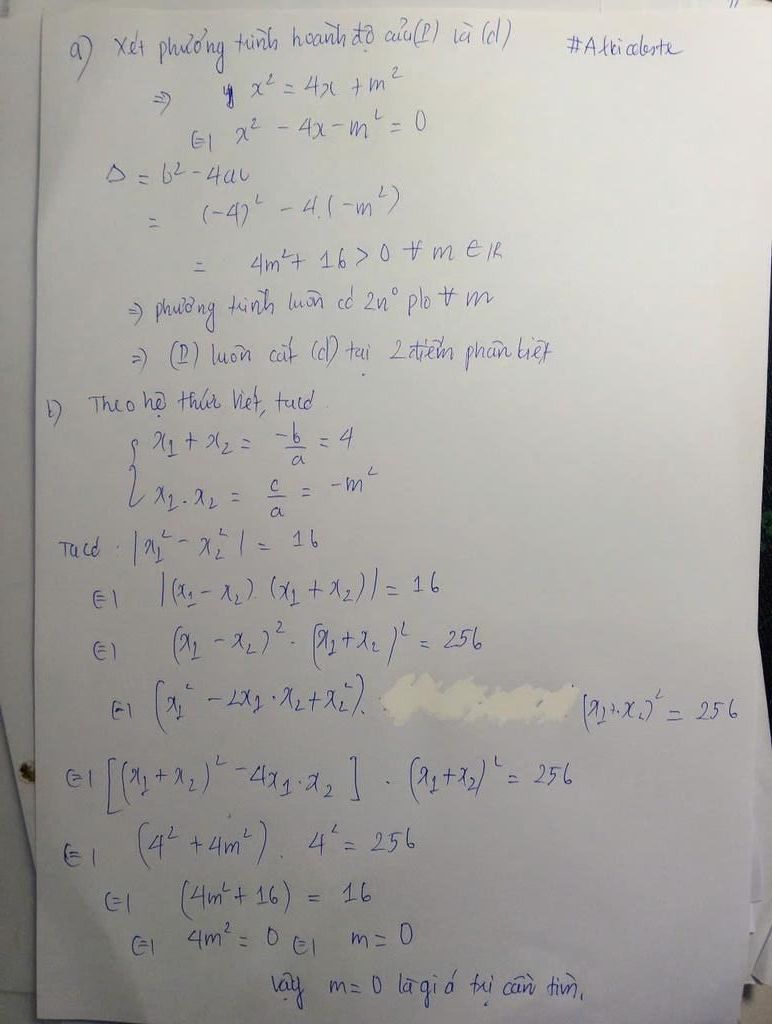 a) Xét phương trình hoành độ của (P) và (d) #Alticoleste
⇒ x² = 4x + m²
⇔ x² - 4x - m² = 0
Δ = b² - 4ac
= (-4)² - 4.(-m²)
= 4m² + 16 > 0 ∀ m ∈ R
⇒ phương trình luôn có 2n⁰ pb ∀ m
⇒ (P) luôn cắt (d) tại 2 điểm phân biệt
b) Theo hệ thức Viét, ta có
{ x₁ + x₂ = -b/a = 4
x₁.x₂ = c/a = -m²
Ta có : |x₁² - x₂²| = 16
⇔ |(x₁ - x₂).(x₁ + x₂)| = 16
⇔ (x₁ - x₂)² . (x₁ + x₂)² = 256
⇔ (x₁² - 2x₁.x₂ + x₂²). (x₁ + x₂)² = 256
⇔ [(x₁ + x₂)² - 4x₁.x₂] . (x₁ + x₂)² = 256
⇔ (4² + 4m²). 4² = 256
⇔ (4m² + 16) = 16
⇔ 4m² = 0 ⇔ m = 0
Vậy m = 0 là giá trị cần tìm.